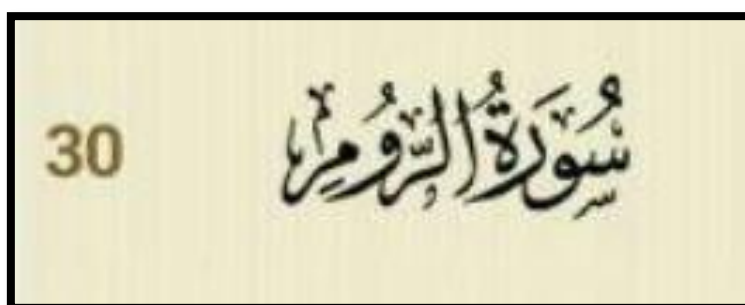 30 سُورَةُ الرُّومِ